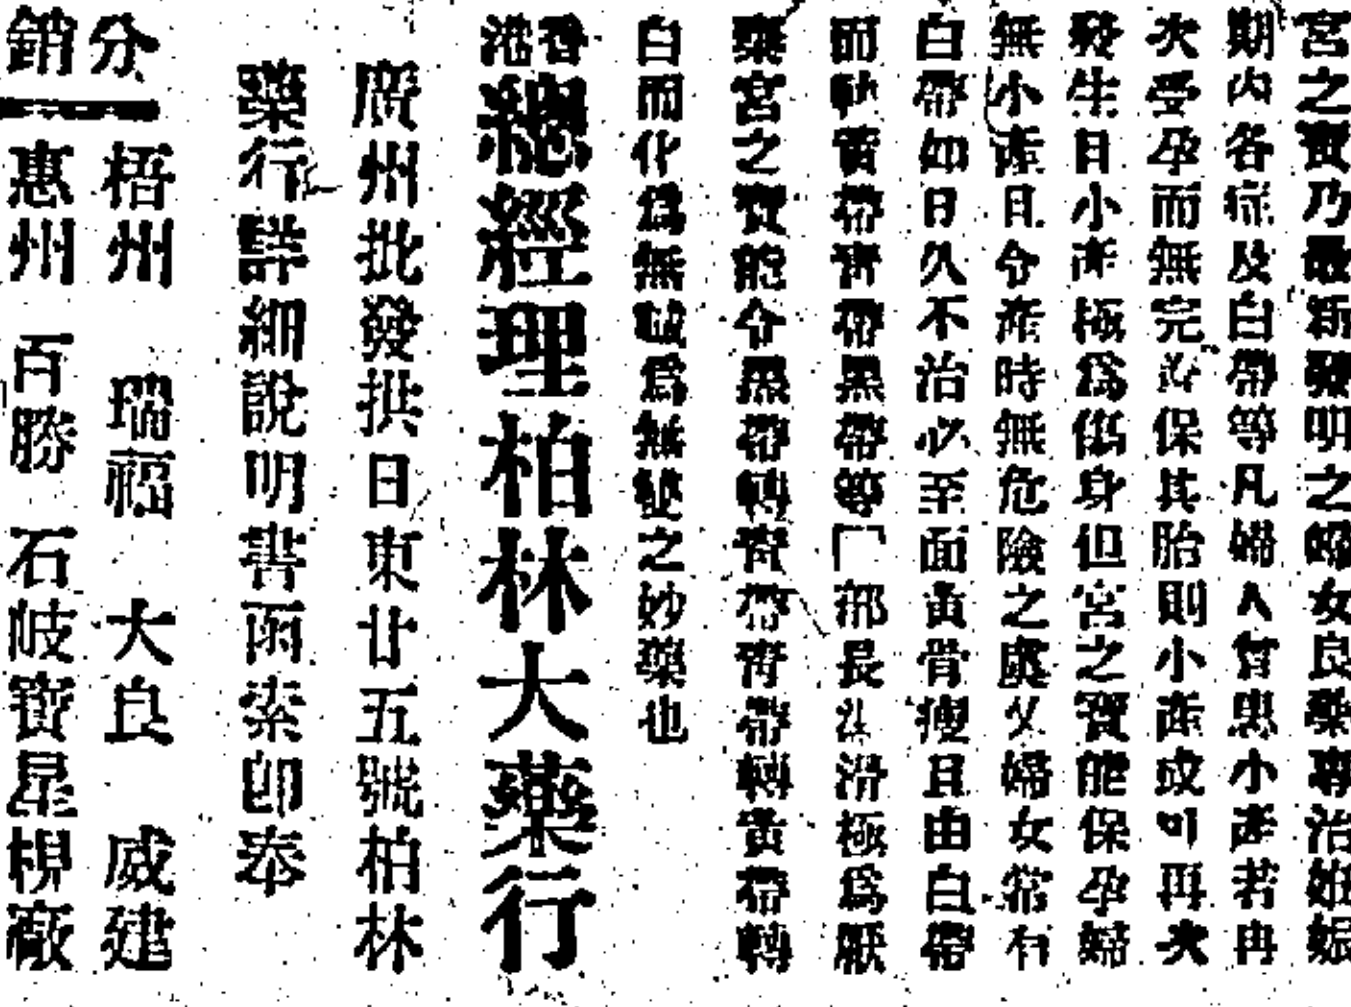 宮之寶乃最新發明之婦女良藥專治姙娠
期內各症及白帶等凡婦人曾患小產若再
次受孕而無完善保其胎則小產或可再次
發生且小產極爲傷身但宮之寶能保孕婦
無小產且令產時無危險之處又婦女常有
白帶如日久不治必至面黃骨瘦且由白帶
而執黃帶青帶黑帶等 部長 滑極爲厭
藥宮之寶能令黑帶轉青帶青帶轉黃帶轉
白而化爲無 爲無雙之妙藥也
香港總經理柏林大藥行
廣州批發拱日東廿五號柏林
藥行詳細說明書函索卽奉
分銷
梧州 瑞福 大良 威建
惠州 百勝 石岐寶星梘廠